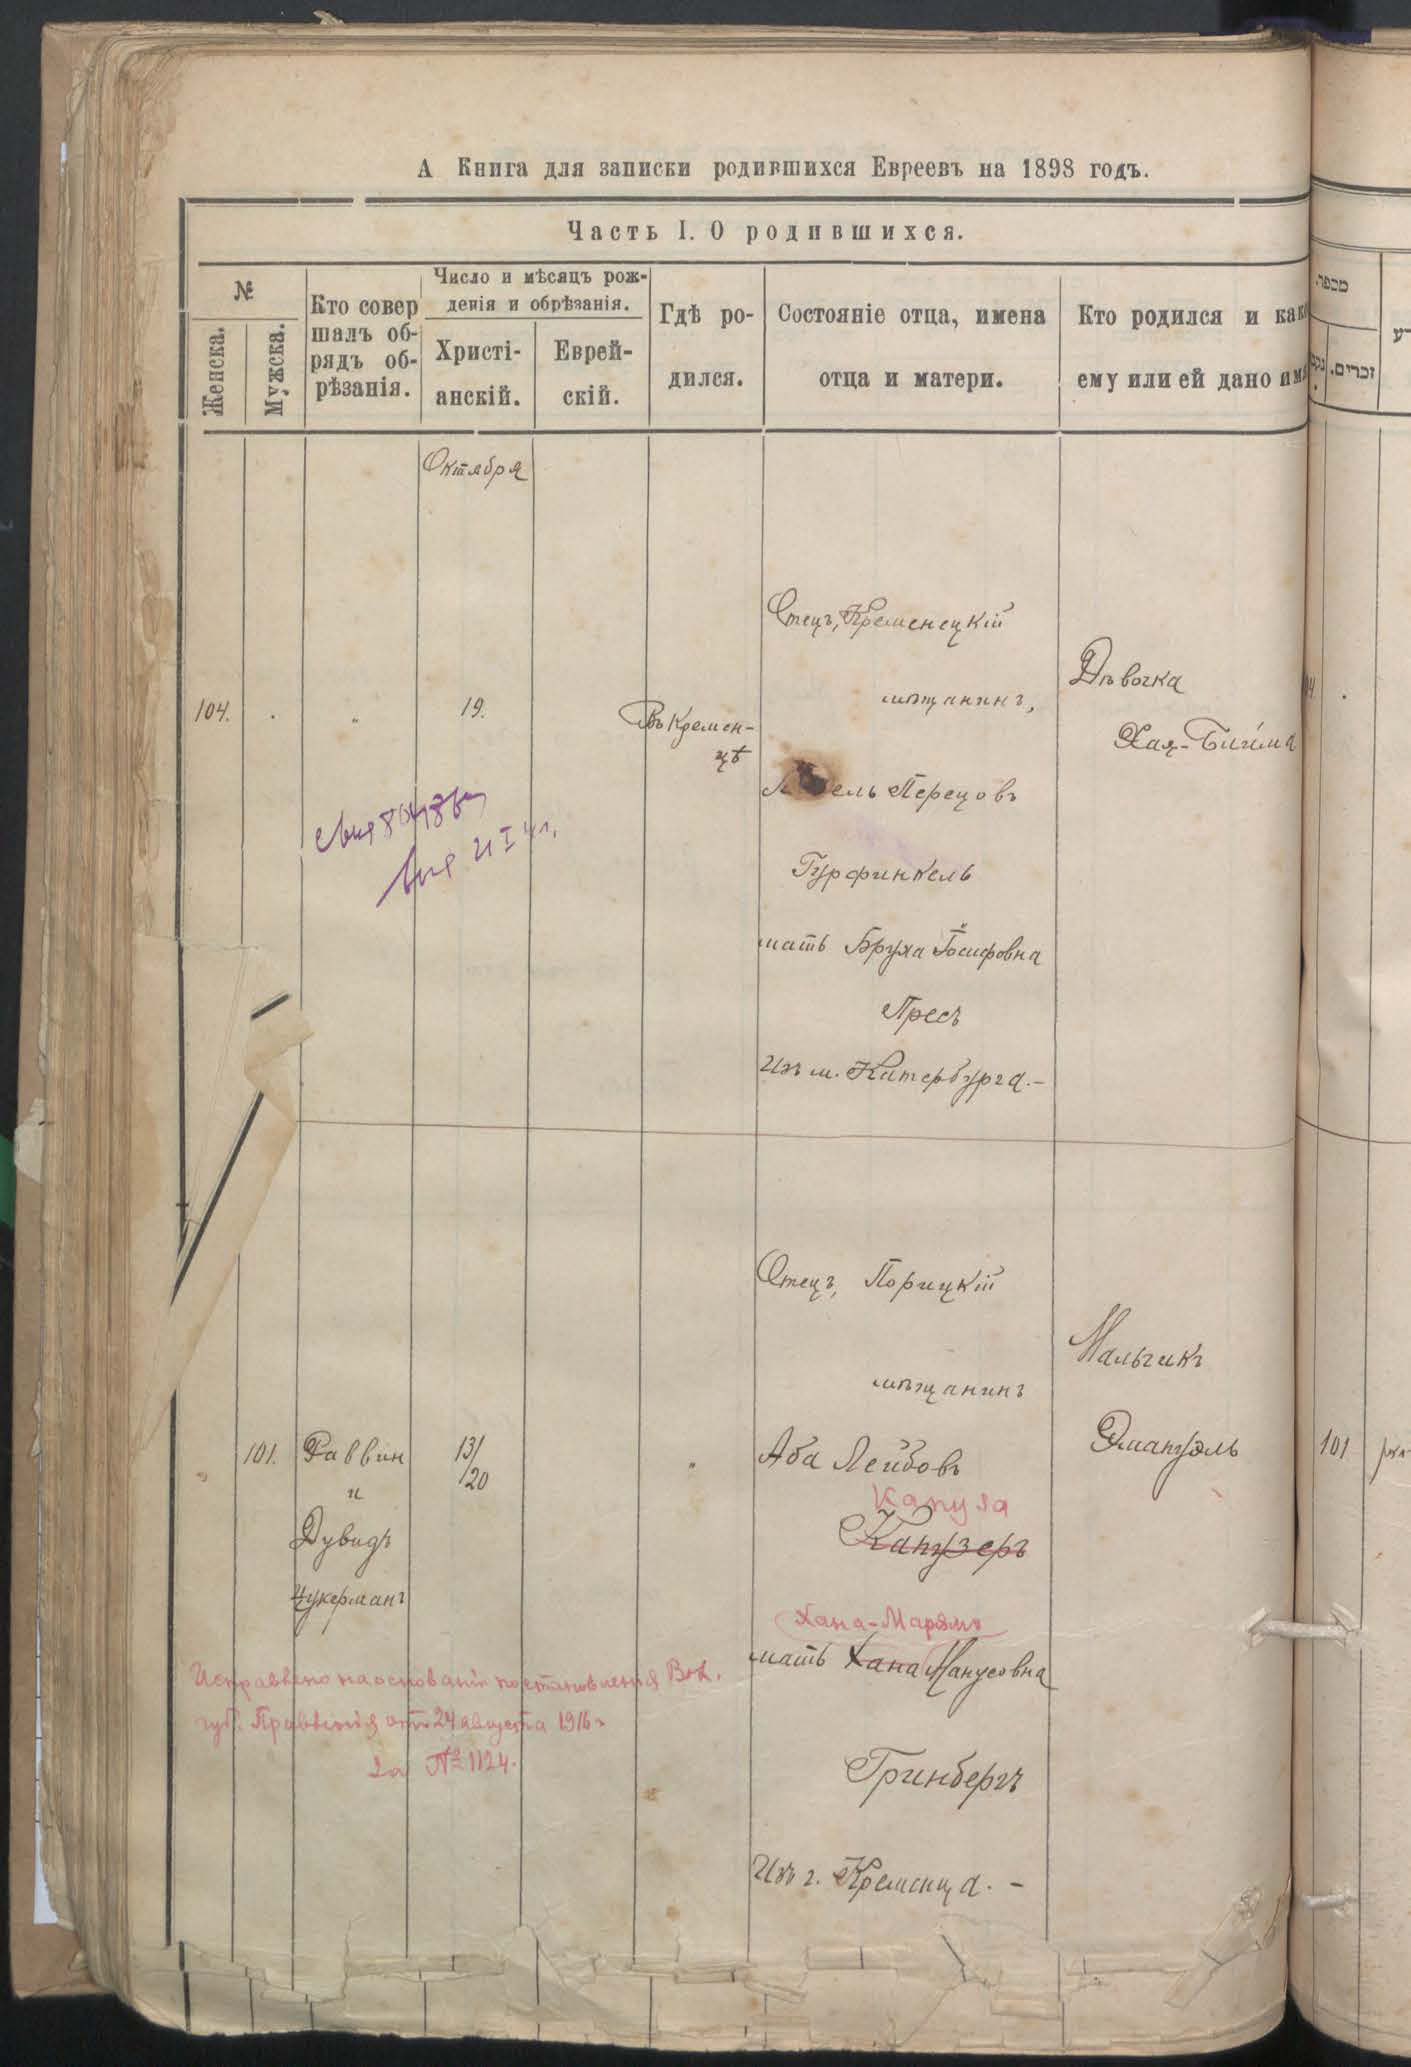 А Книга для записки родившихся Евреевъ на 1898 годъ.
Часть I. О родившихся.
№
Женска.
Мужска.
Кто совер
шалъ об-
рядъ об-
рѣзанія.
Число и мѣсяцъ рож-
денія и обрѣзанія.
Христі-
анскій.
Еврей-
скій.
Гдѣ ро-
дился.
Состояніе отца, имена
отца и матери.
Кто родился и како
ему или ей дано имя
מספר.
זכרים.
Октября
104.
19.
Въ Кремен-
цѣ
Отецъ, Кременецкій
мѣщанинъ,
ель Перецовъ
Гурфинкель
мать Бруха Іосифовна
Пресъ
Изъ м. Катербурга.-
Дѣвочка
Хая-Бигима
101.
Раввин
и
Дувидъ
Цукерманъ
13/
/20
"
Отецъ, Порицкій
мѣщанинъ
Аба Лейбовъ
Капуза
Капузеръ
Хана-Марямъ
мать Хана Манусовна
Гринбергъ
Изъ г. Кременца. -
Мальчикъ
Эмануэль
Исправлено на основаніи постановленія Вол.
губ. Правленія отъ 24 августа 1916 г
за № 1124.
101